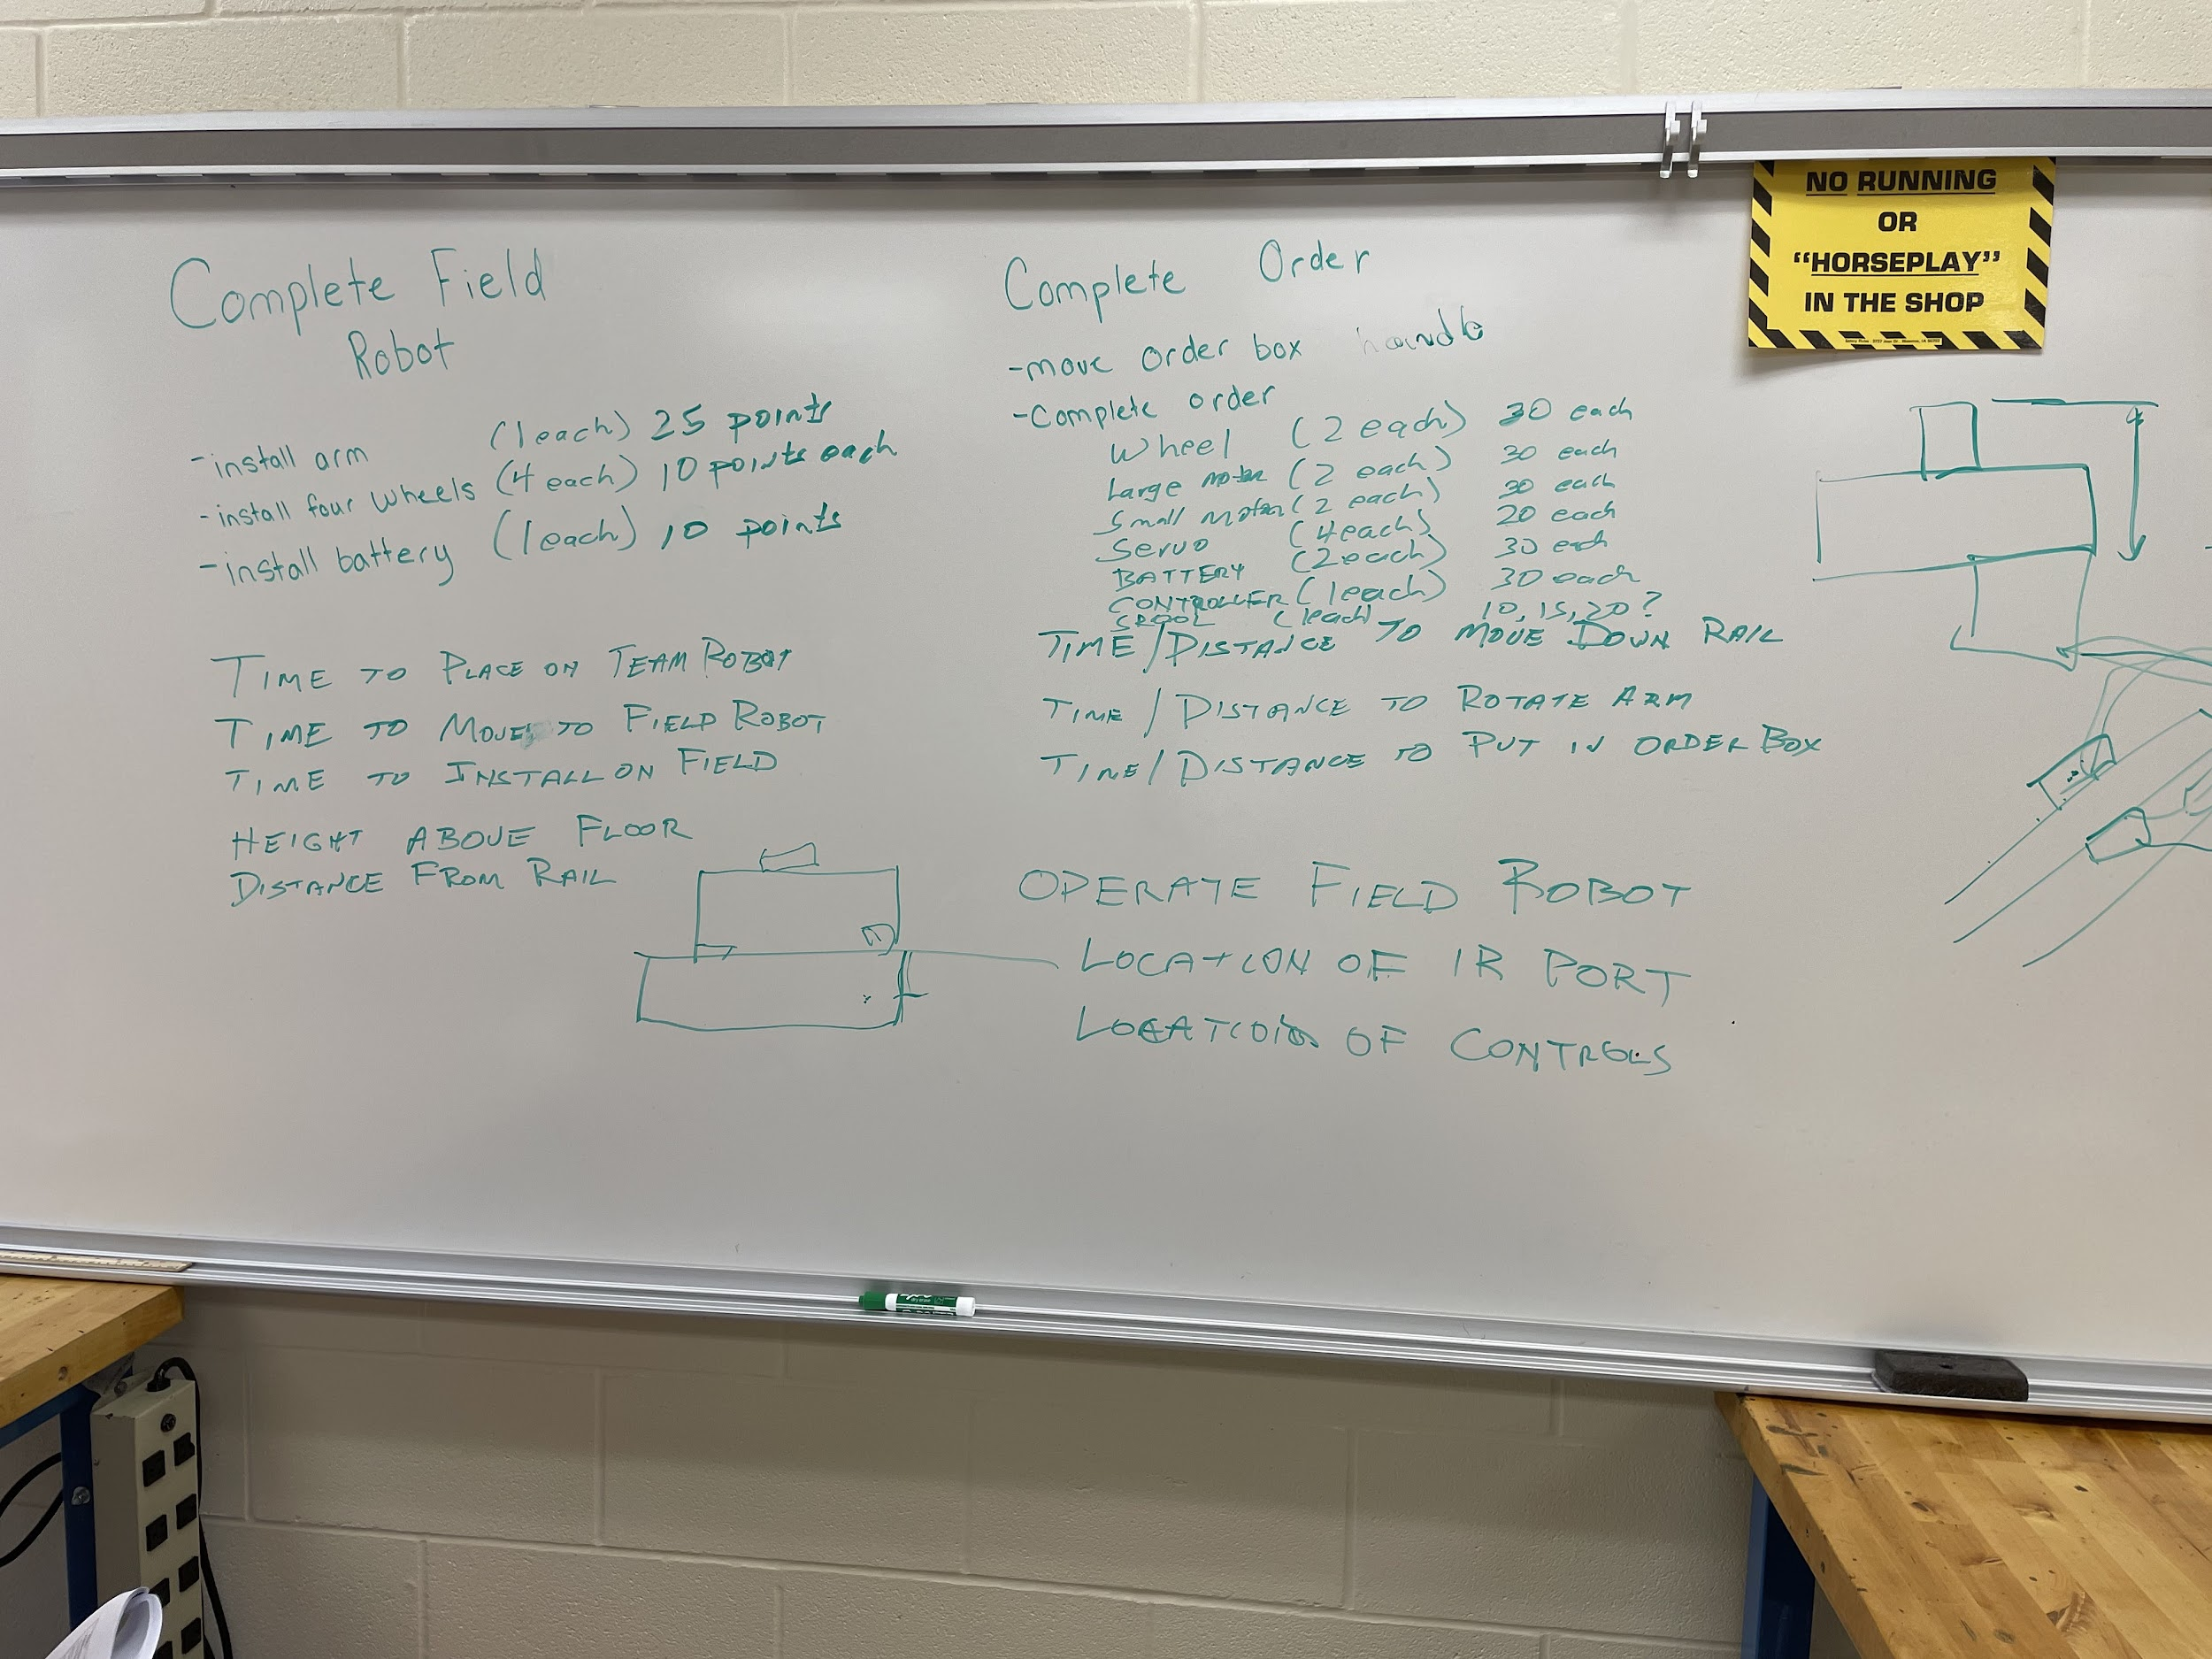 Complete Field
Robot
-install arm (1 each) 25 points
-install four wheels (4 each) 10 points each
-install battery (1 each) 10 points
TIME TO PLACE ON TEAM ROBOT
TIME TO MOVE TO FIELD ROBOT
TIME TO INSTALL ON FIELD
HEIGHT ABOVE FLOOR
DISTANCE FROM RAIL
Complete Order
-move order box handle
-Complete order
Wheel (2 each) 30 each
Large motor (2 each) 30 each
Small Motor (2 each) 30 each
Servo (4 each) 20 each
BATTERY (2 each) 30 each
CONTROLLER (1 each) 30 each
SPOOL (1 each) 10, 15, 20?
TIME/DISTANCE TO MOVE DOWN RAIL
TIME/DISTANCE TO ROTATE ARM
TIME/DISTANCE TO PUT IN ORDER BOX
OPERATE FIELD ROBOT
LOCATION OF IR PORT
LOCATION OF CONTROLS
NO RUNNING
OR
"HORSEPLAY"
IN THE SHOP